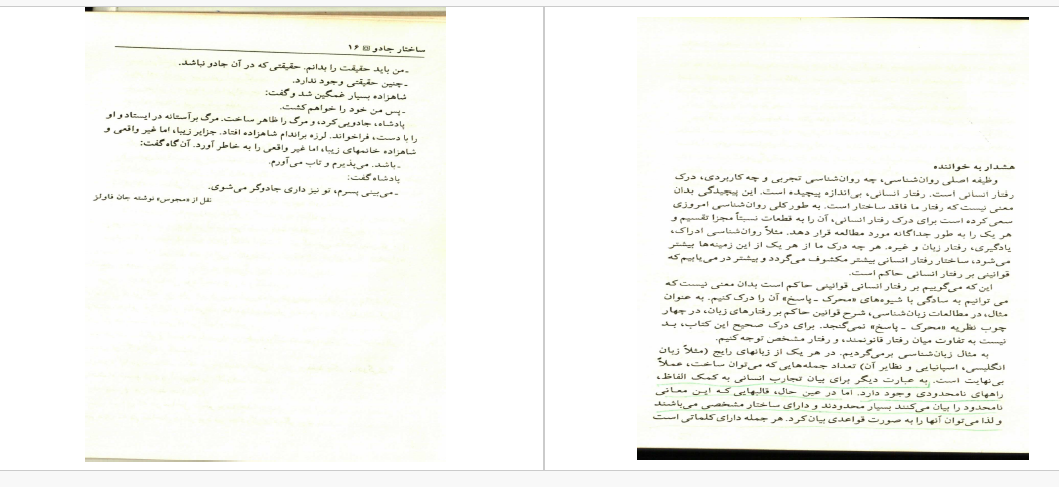 ساختار جادو ۱۶
ـ من باید حقیقت را بدانم. حقیقتی که در آن جادو نباشد.
ـ چنین حقیقتی وجود ندارد.
شاهزاده بسیار غمگین شد و گفت:
ـ پس من خود را خواهم کشت.
پادشاه، جادویی کرد، و مرگ را ظاهر ساخت. مرگ برآستانه در ایستاد و او
را با دست، فراخواند. لرزه براندام شاهزاده افتاد. جزایر زیبا، اما غیر واقعی و
شاهزاده خانمهای زیبا، اما غیر واقعی را به خاطر آورد. آن گاه گفت:
ـ باشد. می‌پذیرم و تاب می‌آورم.
پادشاه گفت:
ـ می‌بینی پسرم، تو نیز داری جادوگر می‌شوی.
نقل از «مجوس» نوشته جان فاولز
هشدار به خواننده
وظیفه اصلی روان‌شناسی، چه روان‌شناسی تجربی و چه کاربردی، درک
رفتار انسانی است. رفتار انسانی، بی‌اندازه پیچیده است. این پیچیدگی بدان
معنی نیست که رفتار ما فاقد ساختار است. به طور کلی روان‌شناسی امروزی
سعی کرده است برای درک رفتار انسانی، آن را به قطعات نسبتاً مجزا تقسیم و
هر یک را به طور جداگانه مورد مطالعه قرار دهد. مثلاً روان‌شناسی ادراک،
یادگیری، رفتار زبان و غیره. هر چه درک ما از هر یک از این زمینه‌ها بیشتر
می‌شود، ساختار رفتار انسانی بیشتر مکشوف می‌گردد و بیشتر در می‌یابیم که
قوانینی بر رفتار انسانی حاکم است.
این که می‌گوییم بر رفتار انسانی قوانینی حاکم است بدان معنی نیست که
می توانیم به سادگی با شیوه‌های «محرک ـ پاسخ» آن را درک کنیم. به عنوان
مثال، در مطالعات زبان‌شناسی، شرح قوانین حاکم بر رفتارهای زبان، در چهار
چوب نظریه «محرک ـ پاسخ» نمی‌گنجد. برای درک صحیح این کتاب، بد
نیست به تفاوت میان رفتار قانونمند، و رفتار مشخص توجه کنیم.
به مثال زبان‌شناسی برمی‌گردیم. در هر یک از زبانهای رایج (مثلاً زبان
انگلیسی، اسپانیایی و نظایر آن) تعداد جمله‌هایی که می‌توان ساخت، عملاً
بی‌نهایت است. به عبارت دیگر برای بیان تجارب انسانی به کمک الفاظ،
راههای نامحدودی وجود دارد. اما در عین حال، قالبهایی که این معانی
نامحدود را بیان می‌کنند بسیار محدودند و دارای ساختار مشخصی می‌باشند
و لذا می‌توان آنها را به صورت قواعدی بیان کرد. هر جمله دارای کلماتی است